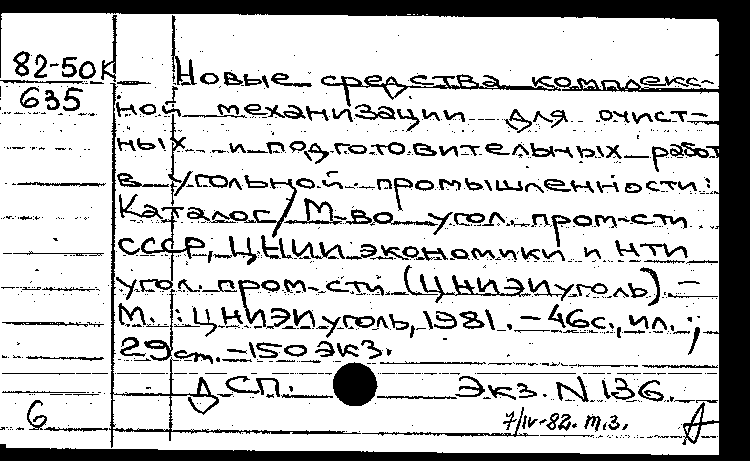 82-50К Новые средства комплекс-
635 ной механизации для очист-
ных и подготовительных работ
в угольной промышленности:
Каталог/М-во угол. пром-сти
СССР, ЦНИИ экономики и НТИ
угол. пром-сти (ЦНИЭИуголь). –
М. : ЦНИЭИуголь, 1981. – 46с., ил. ;
29 см. – 150 экз.
ДСП. Экз. N 136.
6 7/IV-82. т.з.